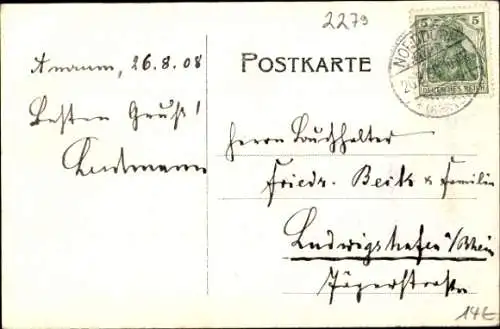 2279
Amrum, 26.8.08
Besten Gruß!
POSTKARTE
5 5
DEUTSCHES REICH
NORDDORF
Herrn Buchhalter
Friedr. Beck & Familie
Ludwigshafen a/Rhein
Jägerstraße
14E